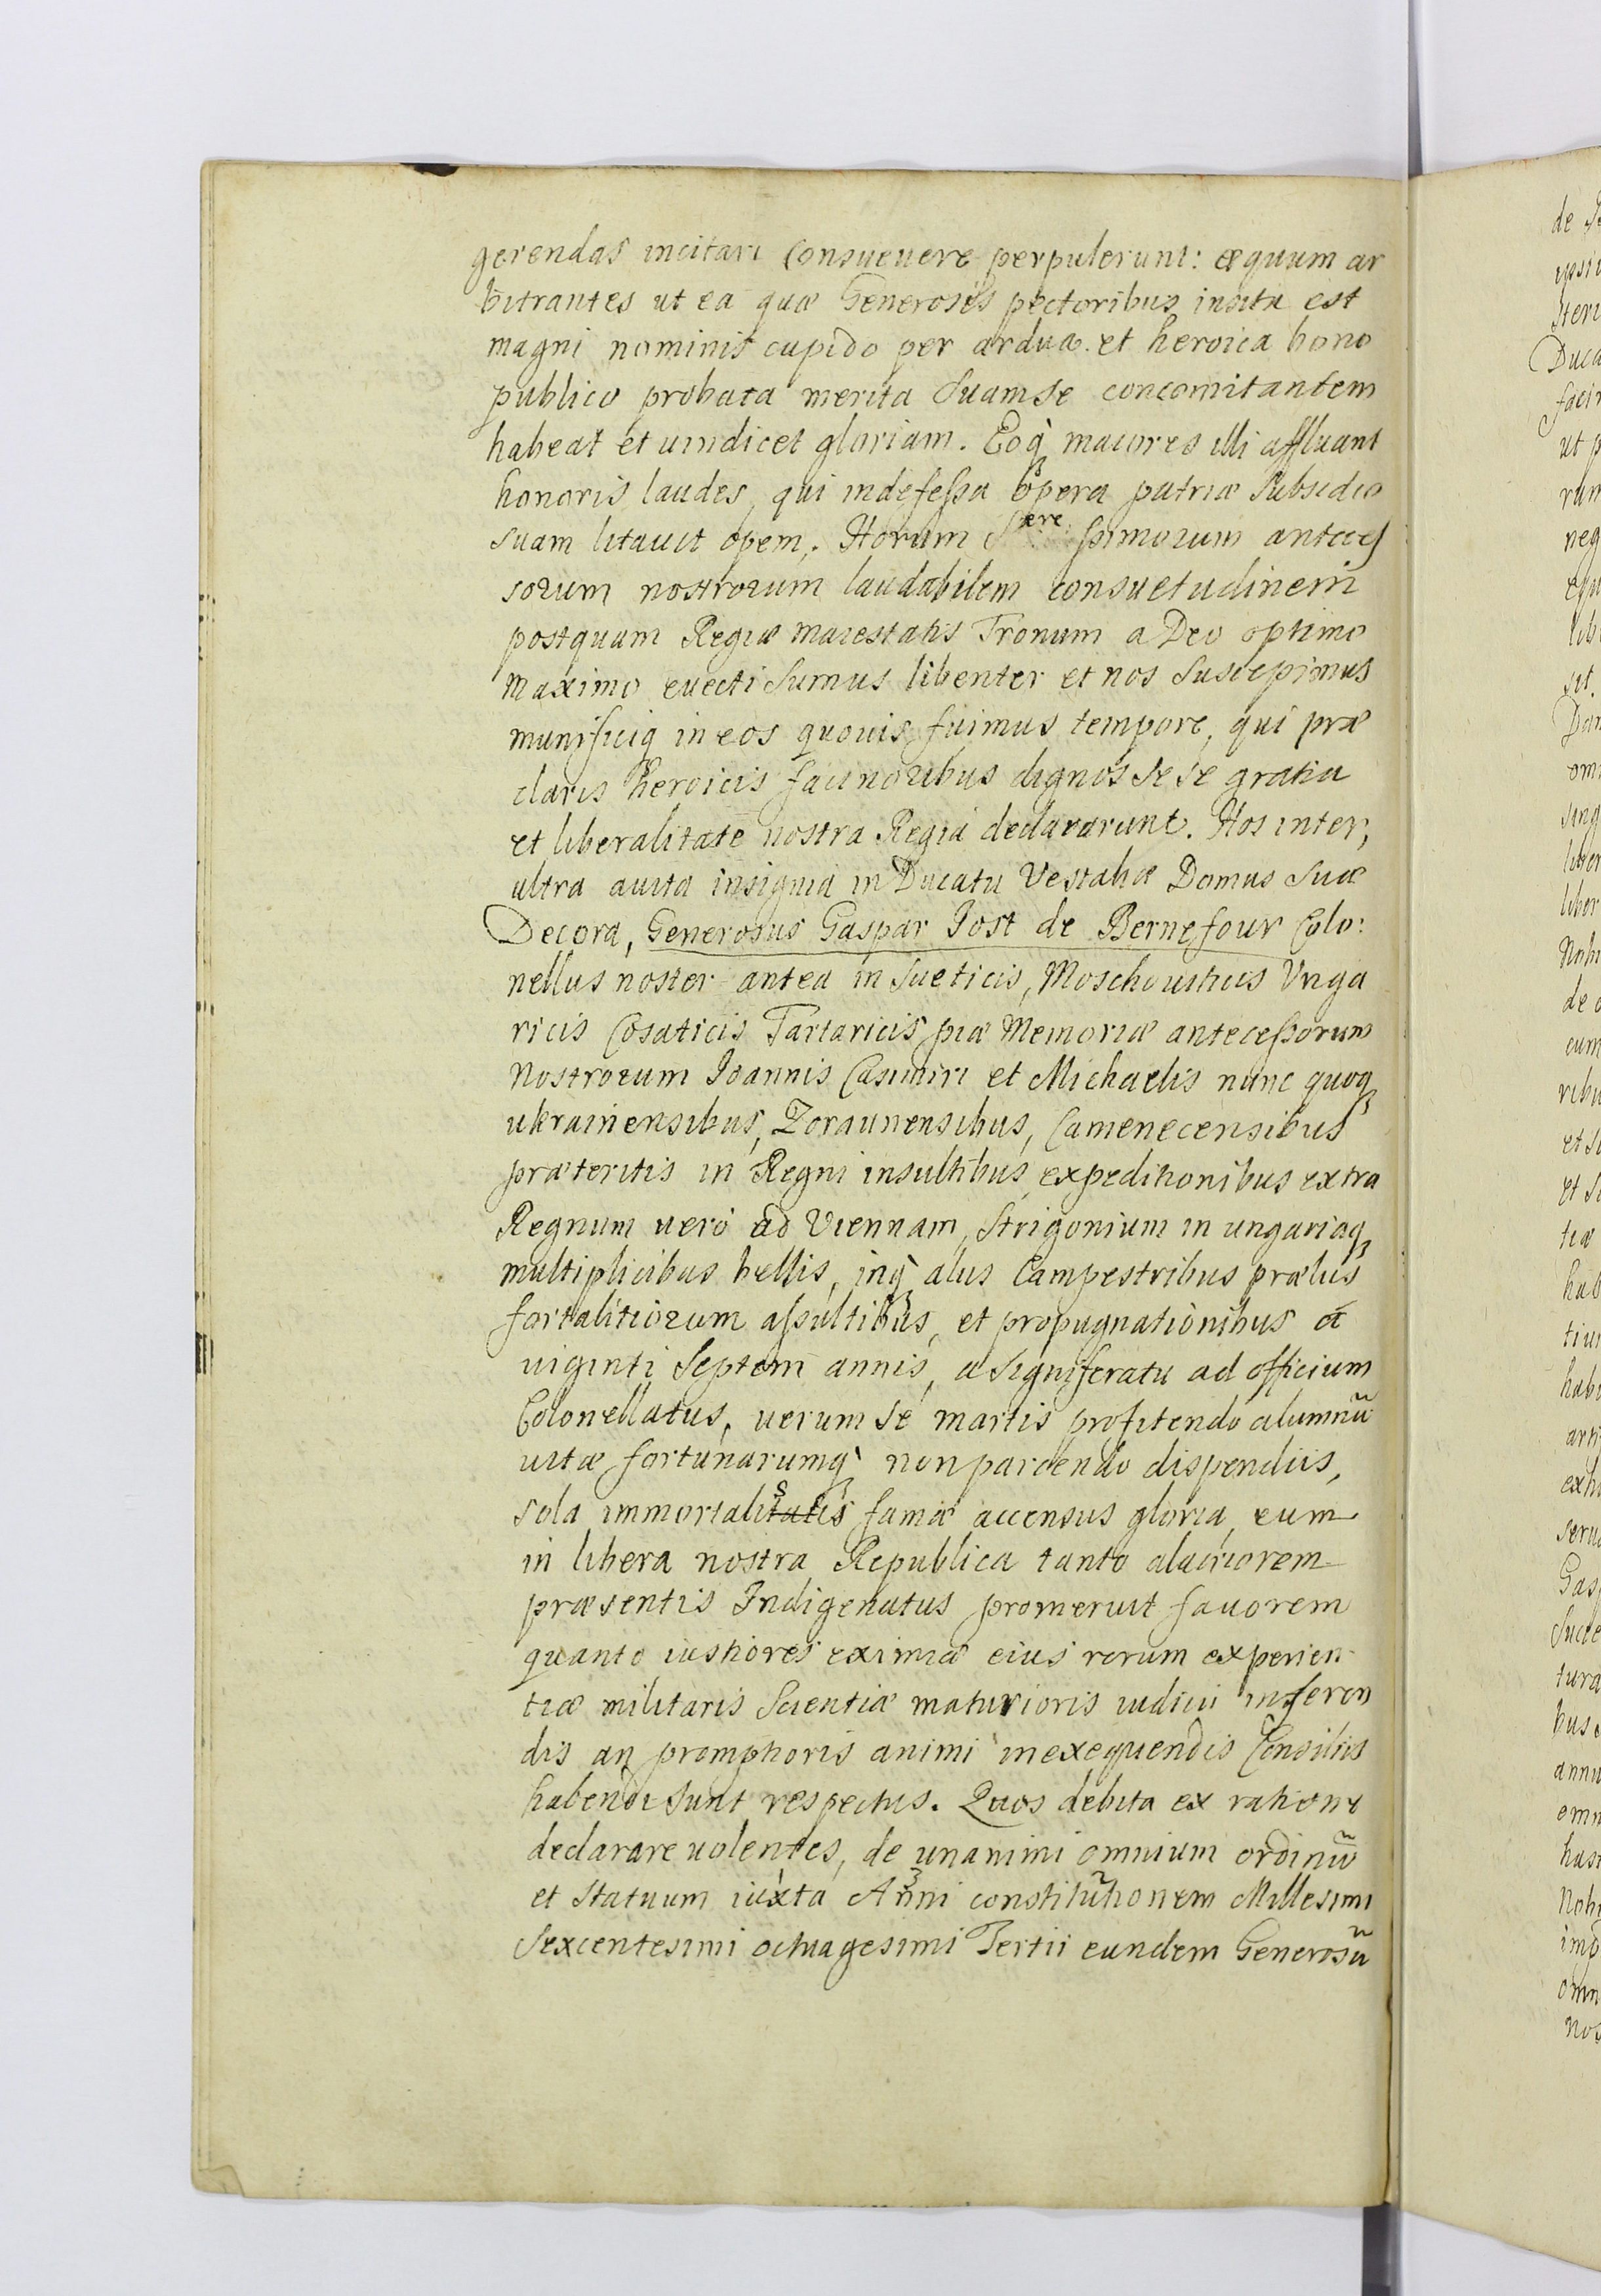 gerendas incitari Consueuere perpulerunt: æquum ar
bitrantes ut ea quæ Generosis pectoribus insita est
magni nominis cupido per ardua. et heroica bono
publico probata merita Suam se concomitantem
habeat et uindicet gloriam. Eoq̀ maiores illi affluant
honoris laudes, qui indefessa opera patriæ Subsidio
suam litauit opem. Horum Sereſsimorum anteceſ
sorum nostrorum laudabilem consuetudinem
postquam Regiæ maiestatis Tronum a Deo optimo
Maximo euecti Sumus libenter et nos Suscepimus
munificiq in eos quouis fuimus tempore, qui præ
claris heroicis facinoribus dignos Se se gratia
et liberalitate nostra Regia declararunt. Hos inter,
ultra auita insignia in Ducatu Vestaliæ Domus Suæ
Decora, Generosus Gaspar Jost de Bernefour Colo:
nellus noster antea in Sueticis, Moschouiticis Vnga
ricis Cosaticis Tartaricis piæ Memoriæ anteceſsorum
Nostrorum Joannis Casimiri et Michaelis nunc quoq
ukrainensibus, Zoraunensibus, Camenecensibus
præteritis in Regni insultibus expeditionibus extra
Regnum uero ad Viennam, Strigonium in ungariaq
multiplicibus bellis, inq̀ alijs Campestribus prælijs
fortalitiorum aſsultibus, et propugnationibus a
uiginti Septem annis, a Signiferatu ad officium
Colonellatus, uerum se martis profitendo alumnũ
uitæ fortunarumq̀ non parcendo dispendiis,
sola immortalitatis s famæ accensus gloria, eum
in libera nostra Republica tanto alacriorem
præsentis Indigenatus promeruit fauorem
quanto iustiores eximiæ eius rerum experien
tiæ militaris Scientiæ maturioris iudicii inferen
dis an promptioris animi in exequendis Consiliis
habendi sunt respectus. Quos debita ex ratione
declarare uolentes, de unanimi omnium ordinũ
et Statuum iuxta Anni constitutionem Millesimi
Sexcentesimi octuagesimi Tertii eundem Generosũ